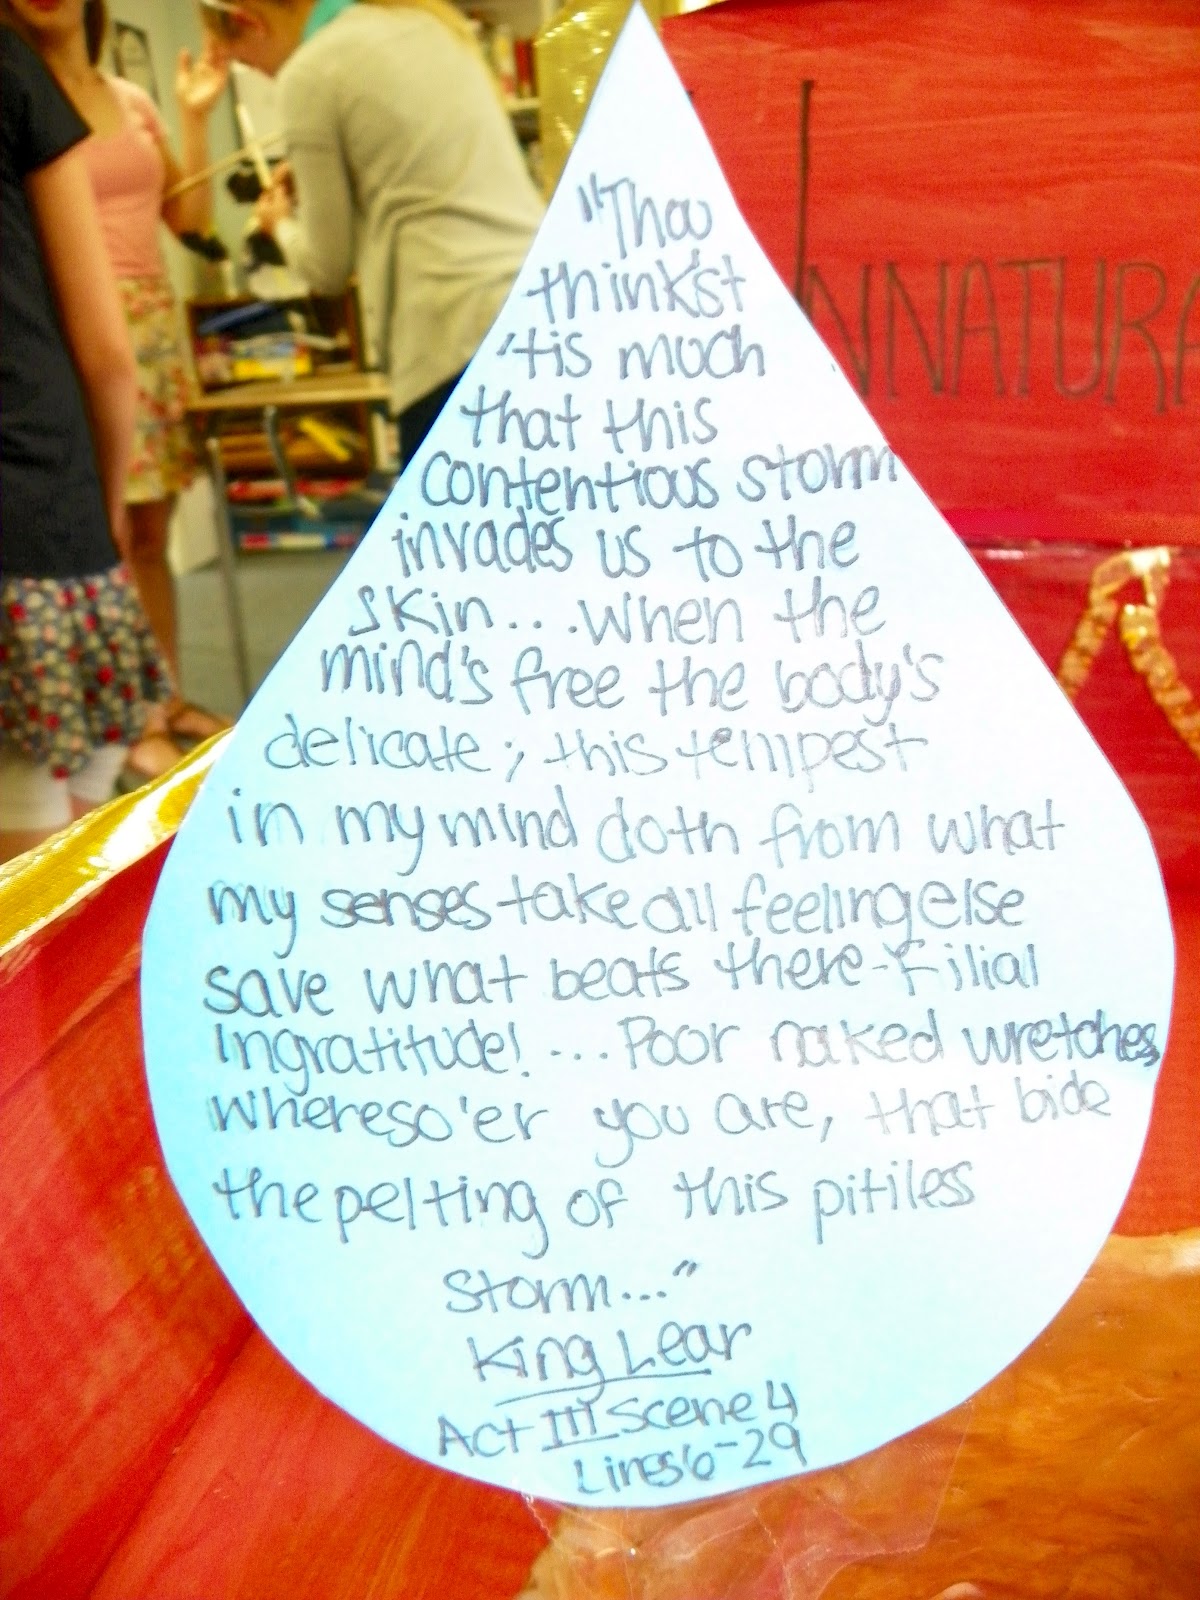 "Thou
think'st
'tis much
that this
contentious storm
invades us to the
skin... when the
mind's free the body's
delicate; this tempest
in my mind doth from what
my senses take all feeling else
save what beats there-filial
Ingratitude! ... Poor naked wretches,
whereso'er you are, that bide
the pelting of this pitiless
storm..."
King Lear
Act III Scene 4
Lines 6-29
UNNATURA